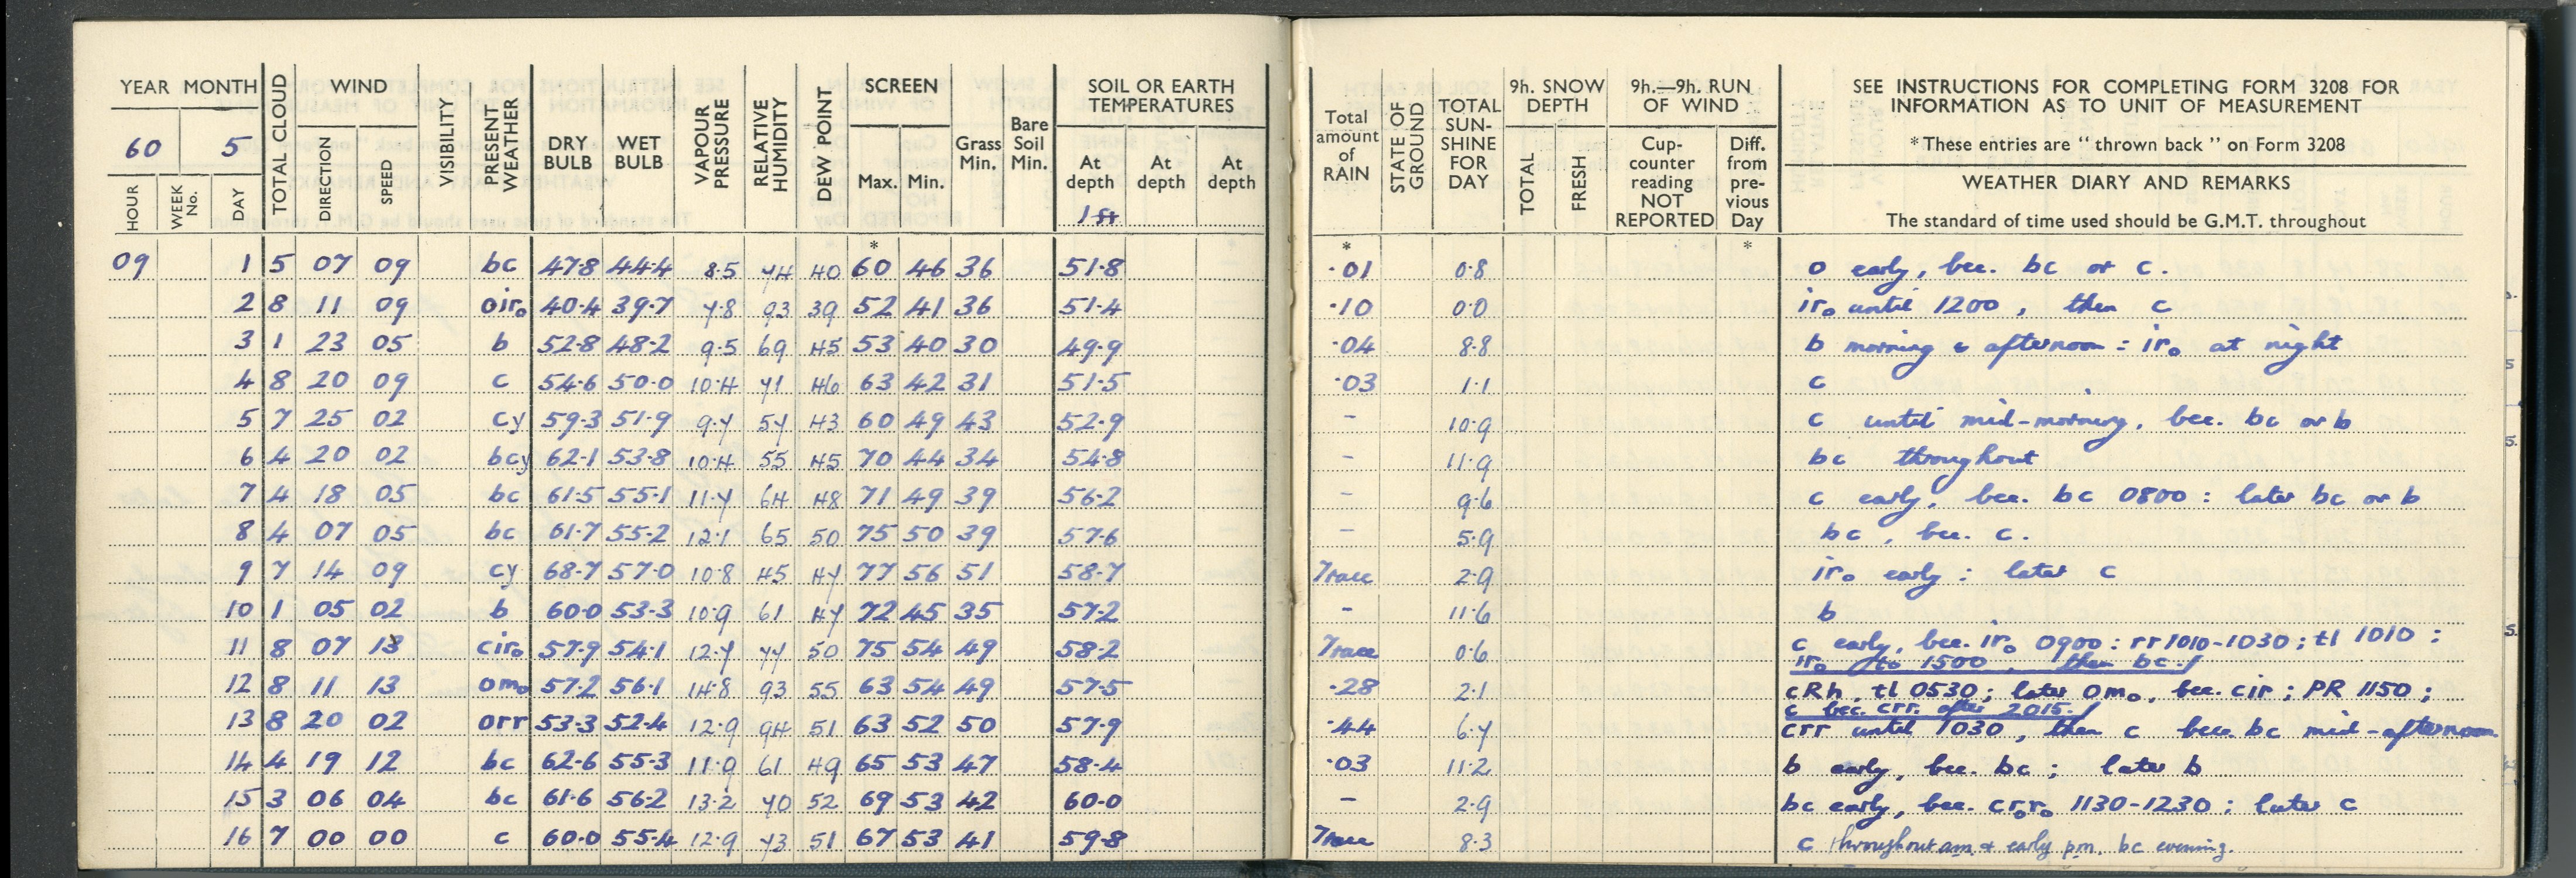 YEAR MONTH
60 5
HOUR WEEK No. DAY TOTAL CLOUD WIND DIRECTION SPEED VISIBILITY PRESENT WEATHER DRY BULB WET BULB VAPOUR PRESSURE RELATIVE HUMIDITY DEW POINT SCREEN Max. Min. Grass Min. Bare Soil Min. SOIL OR EARTH TEMPERATURES At depth 1 ft At depth At depth
Total amount of RAIN STATE OF GROUND TOTAL SUN-SHINE FOR DAY 9h. SNOW DEPTH TOTAL FRESH 9h.—9h. RUN OF WIND Cup-counter reading NOT REPORTED Diff. from pre-vious Day
SEE INSTRUCTIONS FOR COMPLETING FORM 3208 FOR
INFORMATION AS TO UNIT OF MEASUREMENT
* These entries are "thrown back" on Form 3208
WEATHER DIARY AND REMARKS
The standard of time used should be G.M.T. throughout
* * *
09 1 5 07 09 bc 47·8 44·4 8·5 74 40 60 46 36 51·8 ·01 0·8 o early, bec. bc or c.
2 8 11 09 oir₀ 40·4 39·7 7·8 93 39 52 41 36 51·4 ·10 0·0 ir₀ until 1200, then c
3 1 23 05 b 52·8 48·2 9·5 69 45 53 40 30 49·9 ·04 8·8 b morning & afternoon : ir₀ at night
4 8 20 09 c 54·6 50·0 10·4 71 46 63 42 31 51·5 ·03 1·1 c
5 7 25 02 cy 59·3 51·9 9·7 57 43 60 49 43 52·9 - 10·9 c until mid-morning, bec. bc or b
6 4 20 02 bcy 62·1 53·8 10·4 55 45 70 44 34 54·8 - 11·9 bc throughout
7 4 18 05 bc 61·5 55·1 11·7 64 48 71 49 39 56·2 - 9·6 c early, bec. bc 0800 : later bc or b
8 4 07 05 bc 61·7 55·2 12·1 65 50 75 50 39 57·6 - 5·9 bc, bec. c.
9 7 14 09 cy 68·7 57·0 10·8 45 47 77 56 51 58·7 Trace 2·9 ir₀ early : later c
10 1 05 02 b 60·0 53·3 10·9 61 47 72 45 35 57·2 - 11·6 b
11 8 07 13 cir₀ 57·9 54·1 12·7 77 50 75 54 49 58·2 Trace 0·6 c early, bec. ir₀ 0900 : rr 1010-1030 ; tl 1010 :
ir₀ to 1500, then bc.
12 8 11 13 om₀ 57·2 56·1 14·8 93 55 63 54 49 57·5 ·28 2·1 cRh, tl 0530 ; later om₀, bec. cir ; PR 1150 ;
c bec. crr. after 2015.
13 8 20 02 orr 53·3 52·4 12·9 94 51 63 52 50 57·9 ·44 6·7 crr until 1030, then c bec. bc mid-afternoon
14 4 19 12 bc 62·6 55·3 11·9 61 49 65 53 47 58·4 ·03 11·2 b early, bec. bc ; later b
15 3 06 04 bc 61·6 56·2 13·2 70 52 69 53 42 60·0 - 2·9 bc early, bec. cr₀r₀ 1130-1230 ; later c
16 7 00 00 c 60·0 55·4 12·9 73 51 67 53 41 59·8 Trace 8·3 c throughout am. & early p.m. bc evening.